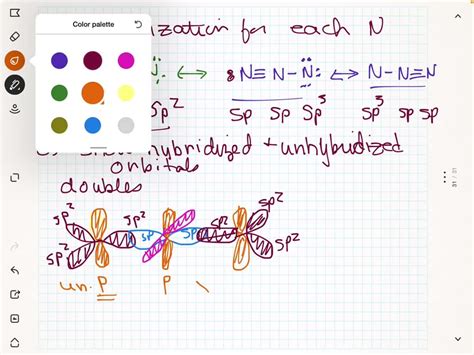 Color palette
ization for each N
N: ↔ :N≡N-N: ↔ N-N≡N
sp² sp sp sp³ sp³ sp sp
hybridized + unhybridized
orbitals
doubles
sp² sp² sp sp sp² sp²
sp² sp²
un. P P
31 / 31